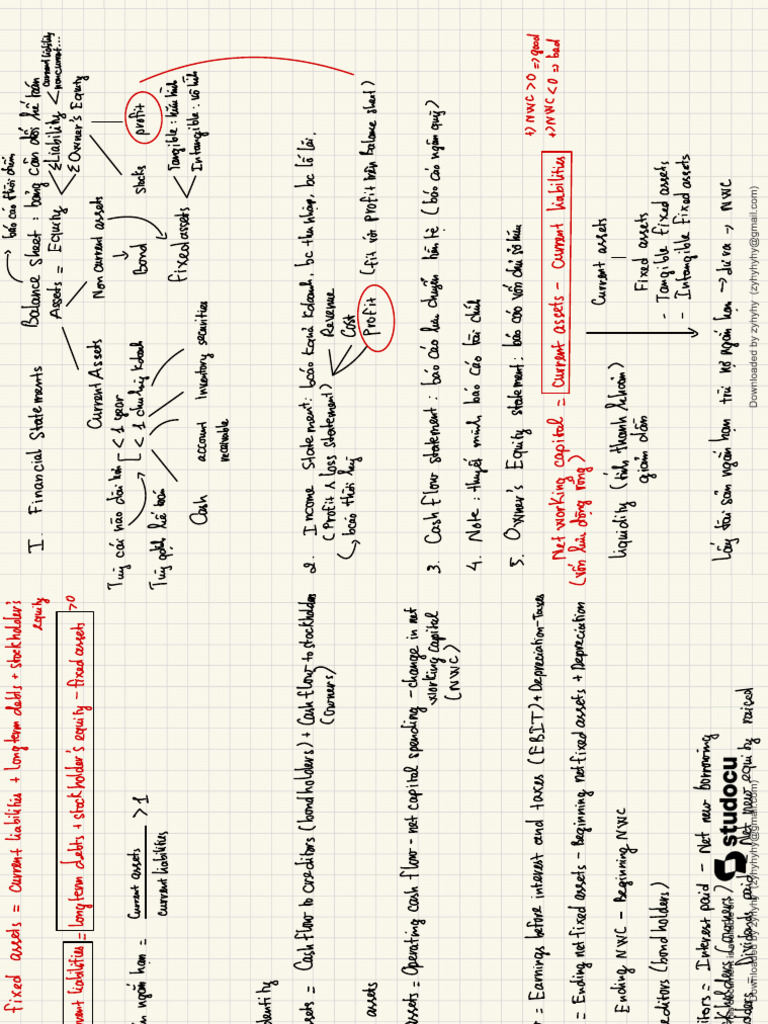 I. Financial Statements
báo cáo thời điểm
Balance Sheet : bảng cân đối kế toán
Assets = Equity
ΣLiability
current liability
noncurrent...
Σ Owner's Equity
profit
stocks
Current Assets
Non current assets
Bond
Fixed assets
Tangible : hữu hình
Intangible : vô hình
[ < 1 year
[ < 1 chu kỳ kdoanh
Cash
account receivable
inventory
securities
2. Income Statement: báo cáo kquả kdoanh, bc thu nhập, bc lỗ lãi.
(Profit & loss statement)
Revenue
Cost
Profit
3. Cash flow statement : báo cáo lưu chuyển tiền tệ (báo cáo ngân quỹ)
4. Note : thuyết minh báo cáo tài chính
5. Owner's Equity statement: báo cáo vốn chủ sở hữu
Net working capital = Current assets - Current liabilities
(vốn lưu động ròng)
+) NWC > 0 => good
+) NWC < 0 => bad
liquidity (tính thanh khoản)
giảm dần
Current assets
Fixed assets
- Tangible fixed assets
- Intangible fixed assets
Lấy tài sản ngắn hạn trừ nợ ngắn hạn -> dư ra -> NWC
fixed assets = Current liabilities + Long term debts + stockholder's equity
liabilities = Long term debts + stockholder's equity - fixed assets > 0
ngắn hạn = Current assets / current liabilities > 1
= Cash flow to creditors (bondholders) + Cash flow to stockholders (owners)
assets
assets = Operating cash flow - net capital spending - change in net working capital (NWC)
= Earnings before interest and taxes (EBIT) + Depreciation - Taxes
= Ending net fixed assets - Beginning net fixed assets + Depreciation
Ending NWC - Beginning NWC
(bond holders)
= Interest paid - Net new borrowing
holders (owners)
= Dividends paid - Net new equity raised
studocu
Downloaded by zyhyhy (zyhyhyhy@gmail.com)